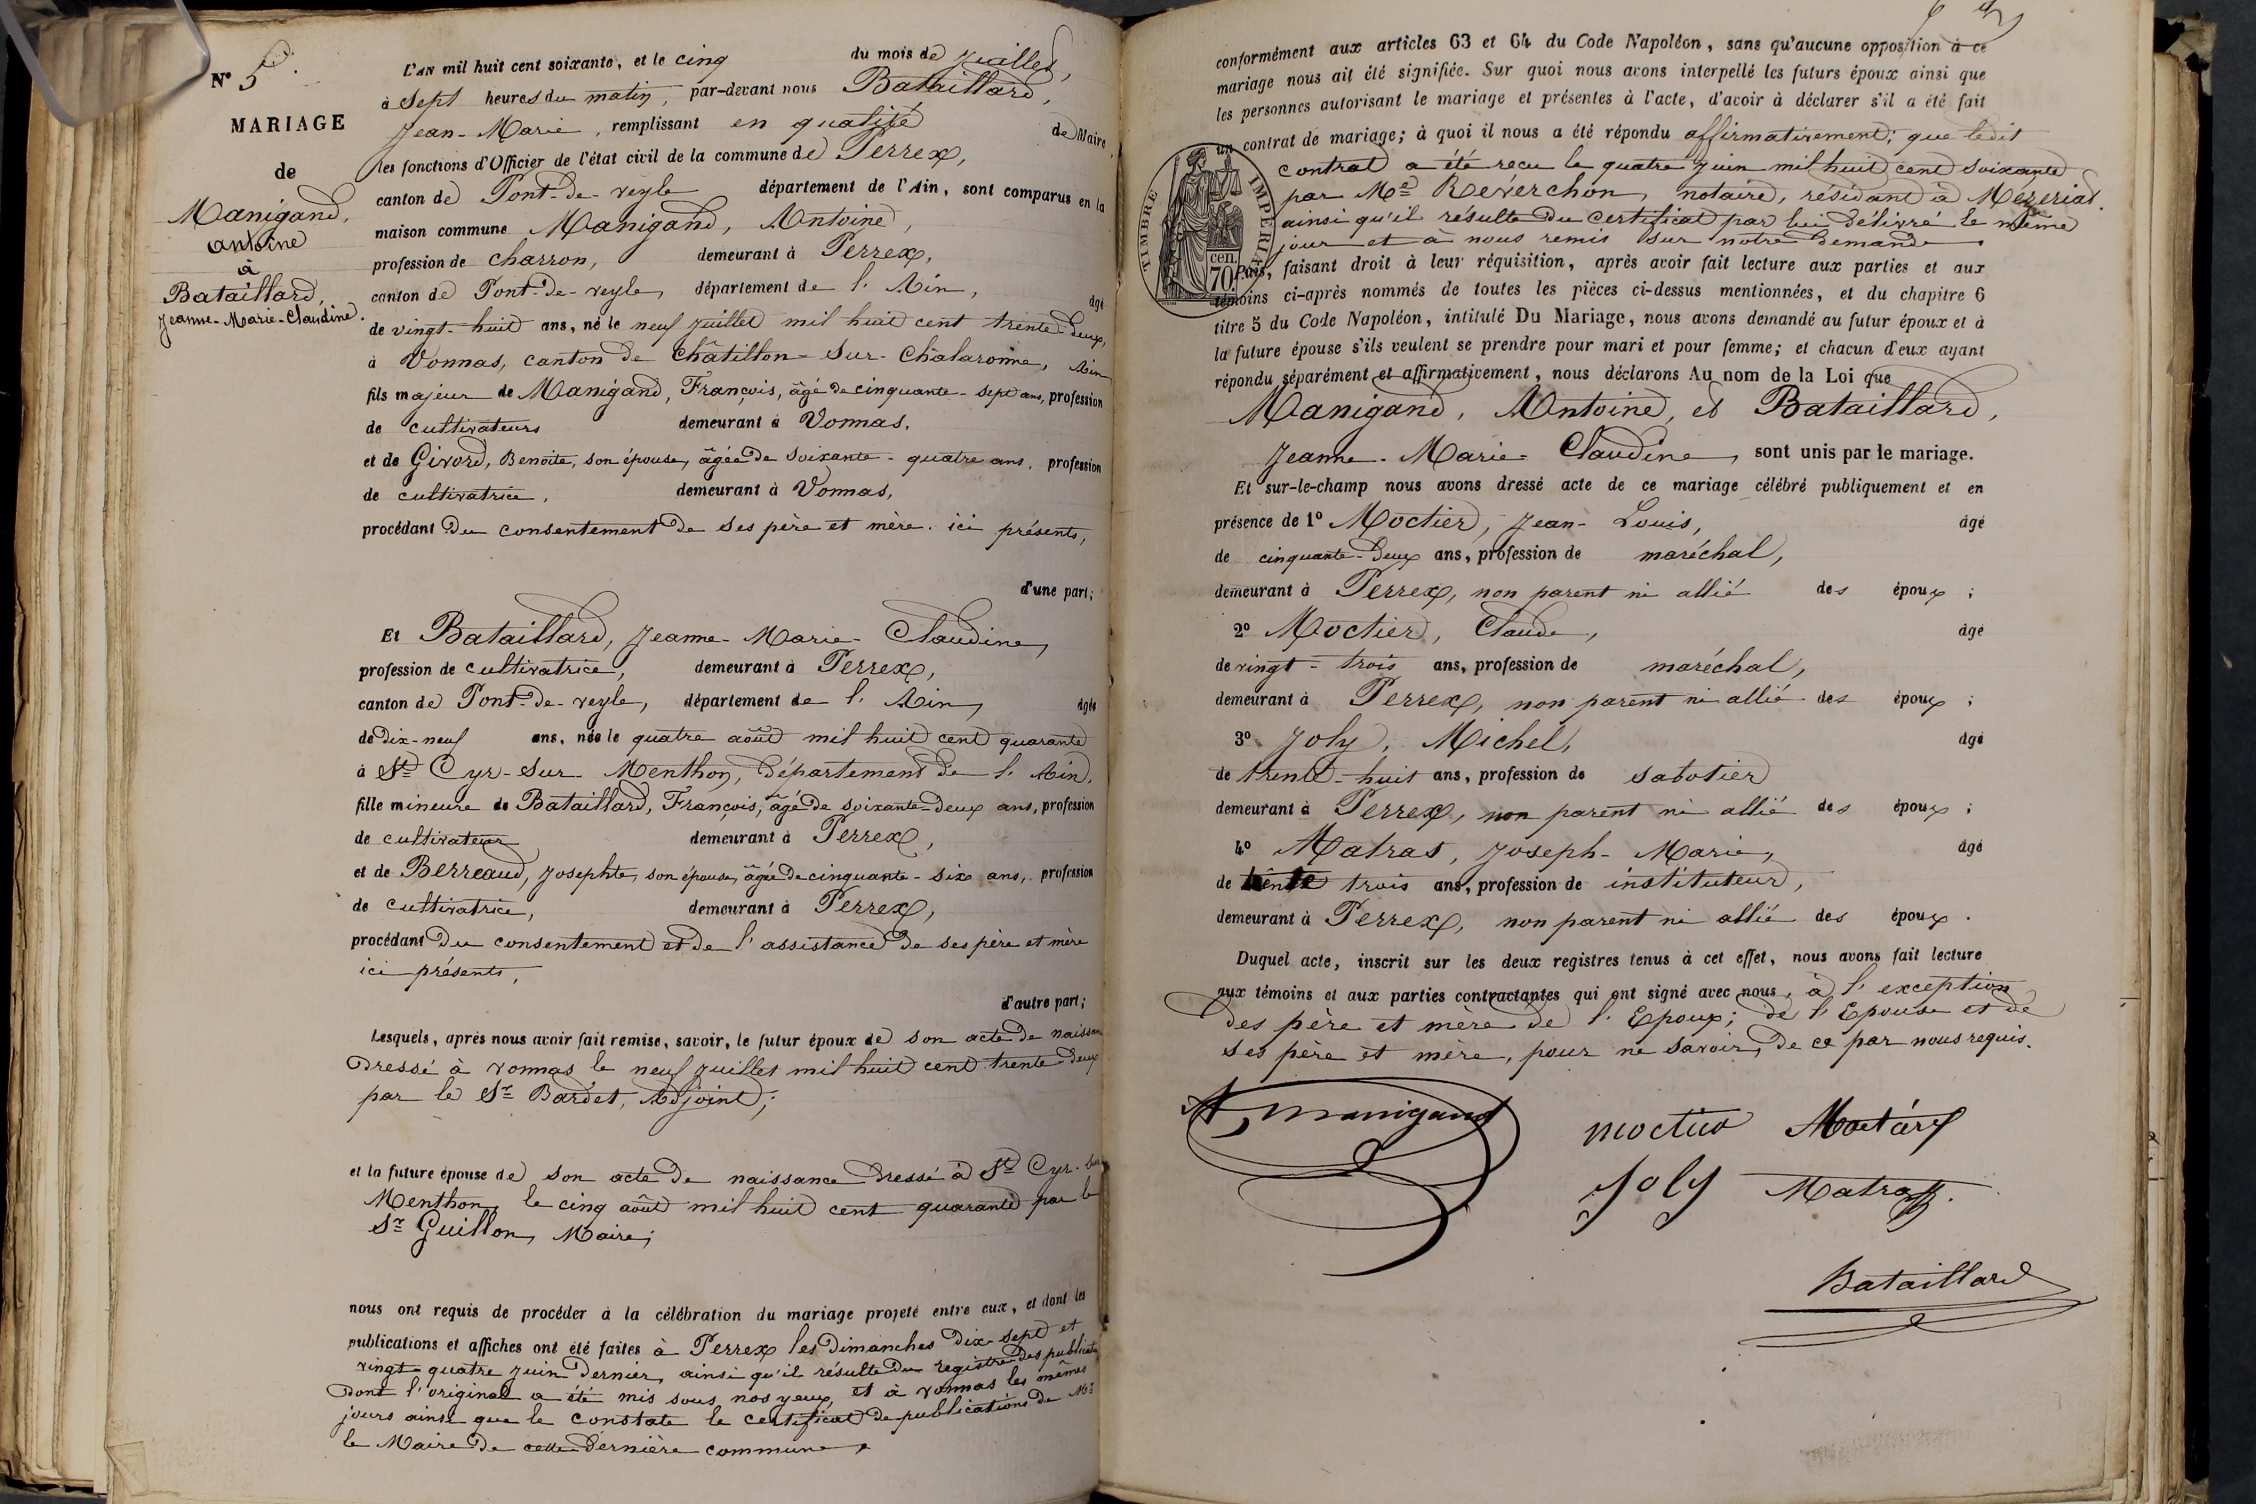 N° 5.
MARIAGE
de
Manigand,
Antoine
à
Bataillard,
Jeanne-Marie-Claudine.
L'AN mil huit cent soixante, et le cinq du mois de Juillet,
à Sept heures du matin, par-devant nous Bataillard,
Jean-Marie, remplissant en qualité de Maire,
les fonctions d'Officier de l'état civil de la commune de Perrex,
canton de Pont-de-veyle département de l'Ain, sont comparus en la
maison commune Manigand, Antoine,
profession de charron, demeurant à Perrex,
canton de Pont-de-veyle, département de l'Ain, âgé
de vingt-huit ans, né le neuf juillet mil huit cent trente deux,
à Vonnas, canton de Châtillon-sur-Chalaronne, Ain
fils majeur de Manigand, François, âgé de cinquante-sept ans, profession
de cultivateurs demeurant à Vonnas.
et de Givord, Benoite, son épouse, âgée de soixante-quatre ans, profession
de cultivatrice, demeurant à Vonnas,
procédant du consentement de ses père et mère. ici présents,
d'une part;
Et Bataillard, Jeanne-Marie-Claudine,
profession de cultivatrice, demeurant à Perrex,
canton de Pont-de-veyle, département de l'Ain, âgée
de dix-neuf ans, née le quatre août mil huit cent quarante
à St Cyr-sur-Menthon, département de l'Ain,
fille mineure de Bataillard, François, âgé de soixante-deux ans, profession
de cultivateur demeurant à Perrex,
et de Berreaud, Josephte, son épouse, âgée de cinquante-six ans, profession
de cultivatrice, demeurant à Perrex,
procédant du consentement et de l'assistance de ses père et mère
ici présents,
d'autre part;
Lesquels, après nous avoir fait remise, savoir, le futur époux de son acte de naissance
dressé à vonnas le neuf juillet mil huit cent trente deux
par le Sr Bardet, Adjoint;
et la future épouse de son acte de naissance dressé à St Cyr-sur
Menthon, le cinq août mil huit cent quarante par le
Sr Guillon, Maire;
nous ont requis de procéder à la célébration du mariage projeté entre eux, et dont les
publications et affiches ont été faites à Perrex les dimanches dix-sept et
vingt-quatre juin dernier, ainsi qu'il résulte du registre des publicats
dont l'original a été mis sous nos yeux, et à vonnas les mêmes
jours ainsi que le constate le certificat de publications de Mr
le Maire de cette dernière commune,
conformément aux articles 63 et 64 du Code Napoléon, sans qu'aucune opposition à ce
mariage nous ait été signifiée. Sur quoi nous avons interpellé les futurs époux ainsi que
les personnes autorisant le mariage et présentes à l'acte, d'avoir à déclarer s'il a été fait
un contrat de mariage; à quoi il nous a été répondu affirmativement; que ledit
contrat a été reçu le quatre juin mil huit cent soixante
par Me Reverchon, notaire, résidant à Mézeriat.
ainsi qu'il résulte du certificat par lui délivré le même
jour et à nous remis sur notre demande.
TIMBRE IMPERIAL
70 cen.
Puis, faisant droit à leur réquisition, après avoir fait lecture aux parties et aux
témoins ci-après nommés de toutes les pièces ci-dessus mentionnées, et du chapitre 6
titre 5 du Code Napoléon, intitulé Du Mariage, nous avons demandé au futur époux et à
la future épouse s'ils veulent se prendre pour mari et pour femme; et chacun d'eux ayant
répondu séparément et affirmativement, nous déclarons Au nom de la Loi que
Manigand, Antoine, et Bataillard,
Jeanne-Marie-Claudine, sont unis par le mariage.
Et sur-le-champ nous avons dressé acte de ce mariage célébré publiquement et en
présence de 1° Moctier, Jean-Louis, âgé
de cinquante-deux ans, profession de maréchal,
demeurant à Perrex, non parent ni allié des époux;
2° Moctier, Claude, âgé
de vingt-trois ans, profession de maréchal,
demeurant à Perrex, non parent ni allié des époux;
3° Joly, Michel, âgé
de trente-huit ans, profession de sabotier
demeurant à Perrex, non parent ni allié des époux;
4° Matras, Joseph-Marie, âgé
de trente trois ans, profession de instituteur,
demeurant à Perrex, non parent ni allié des époux.
Duquel acte, inscrit sur les deux registres tenus à cet effet, nous avons fait lecture
aux témoins et aux parties contractantes qui ont signé avec nous, à l'exception
des père et mère de l'Epoux; de l'Epouse et de
ses père et mère, pour ne savoir, de ce par nous requis.
A. Manigand
moctier
Joly Matras
Bataillard